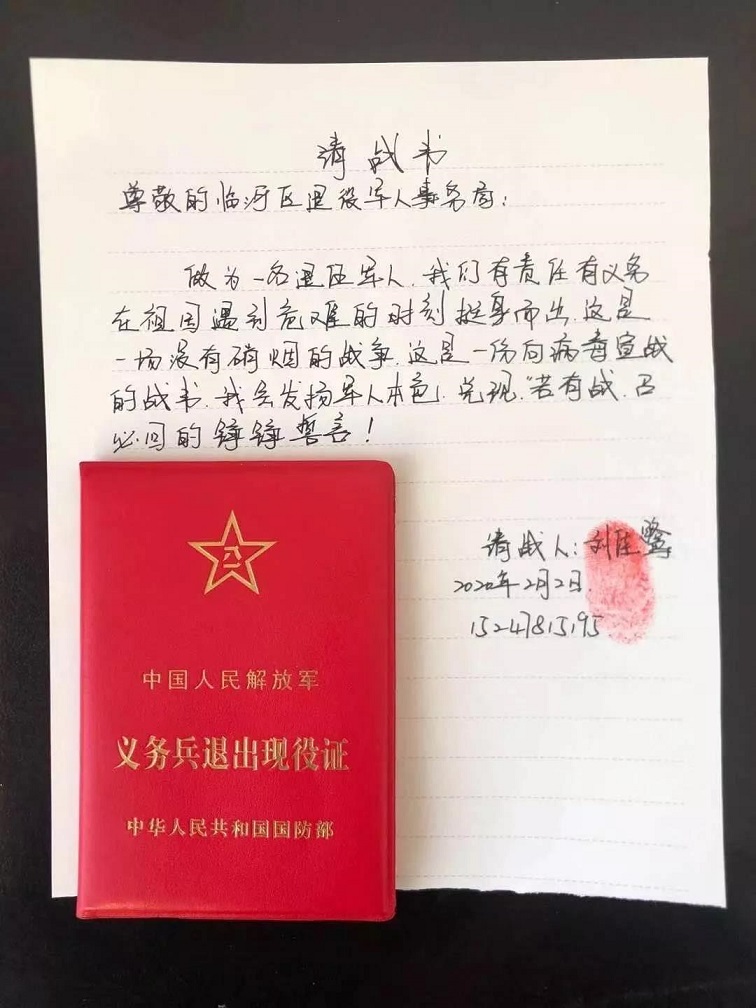 请战书
尊敬的临河区退役军人事务局:
做为一名退伍军人,我们有责任有义务
在祖国遇到危难的时刻挺身而出,这是
一场没有硝烟的战争,这是一份向病毒宣战
的战书,我会发扬军人本色,兑现“若有战,召
必回的铮铮誓言!
请战人:刘
2020年2月2日
15247815195
八一
中国人民解放军
义务兵退出现役证
中华人民共和国国防部